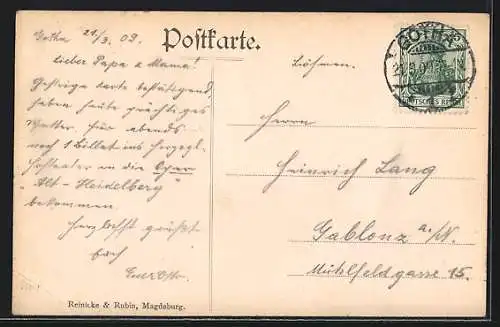 Gotha 21/3. 09.
Postkarte.
Lieber Papa & Mama!
Gestrige Karte bestätigend,
haben heute prächtiges
Wetter. Für abends
noch 1 Billet ins Herzogl.
Hoftheater in die Oper
"Alt-Heidelberg"
bekommen.
Herzlichst grüsst
Euch
Euer Otto.
Böhmen.
Herrn
Heinrich Lang
Gablonz a/N.
Mühlfeldgasse 15.
GOTHA
DEUTSCHES REICH
Reinicke & Rubin, Magdeburg.